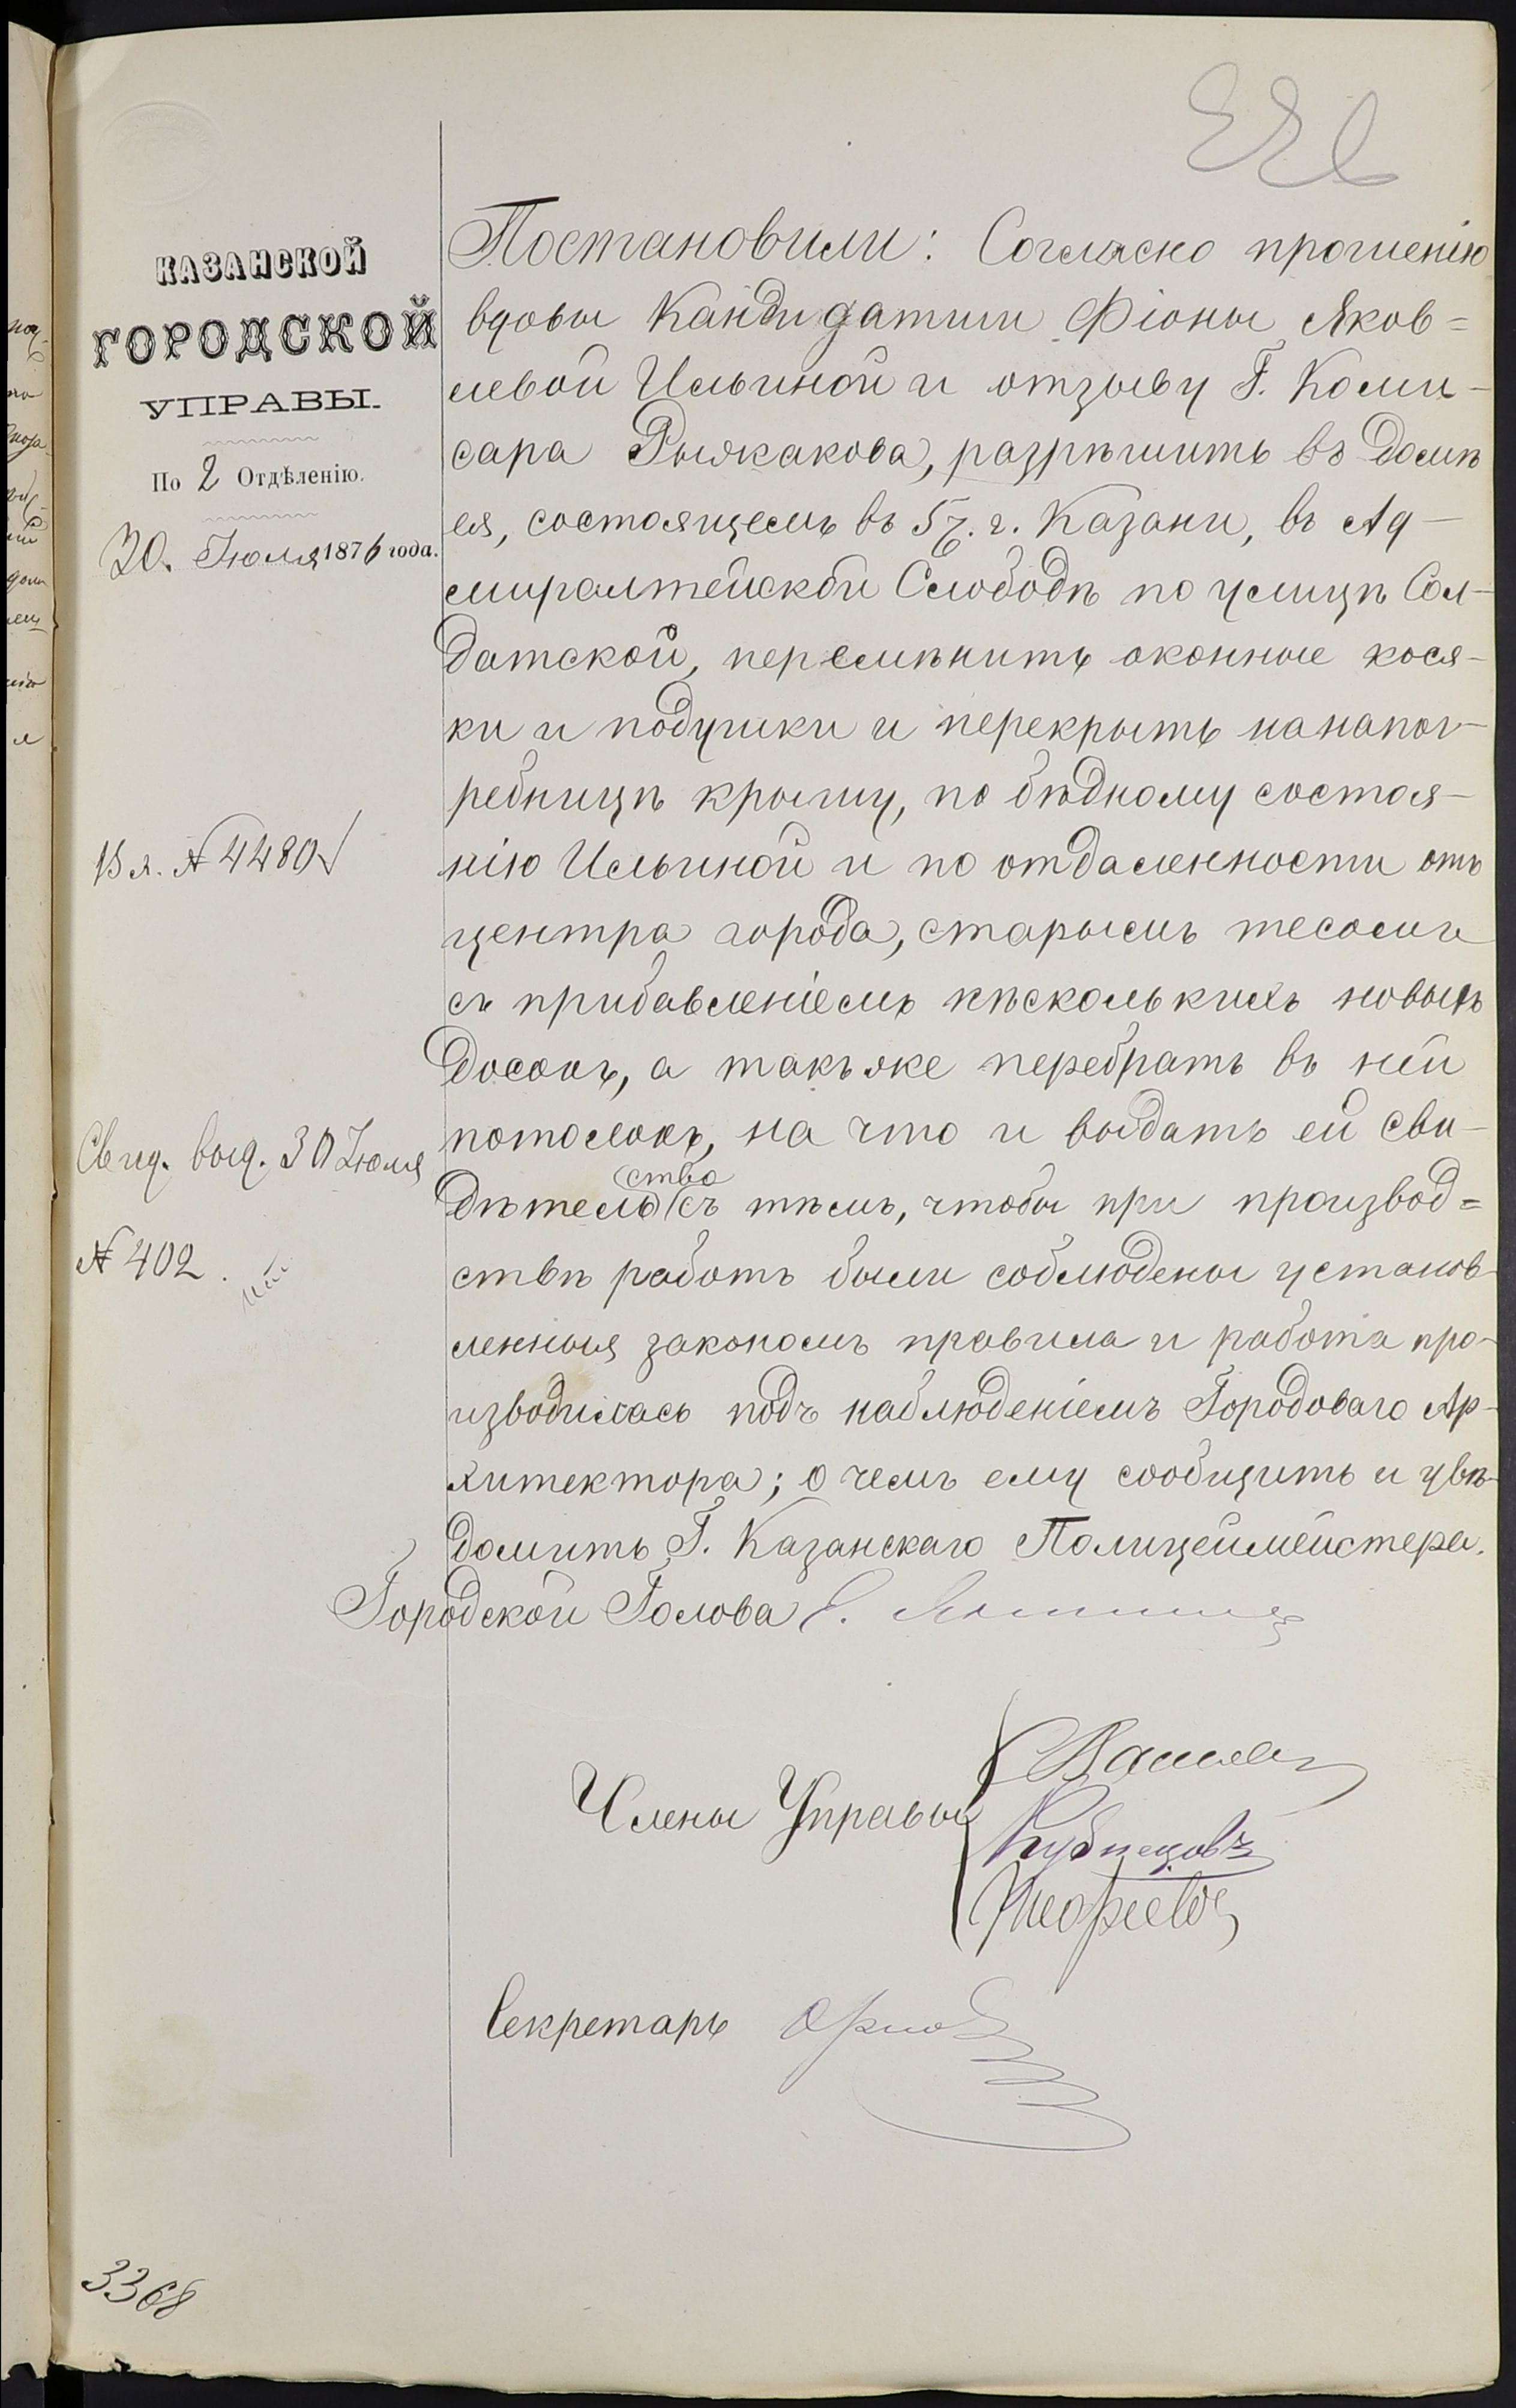 КАЗАНСКОЙ
ГОРОДСКОЙ
УПРАВЫ.
По 2 Отдѣленію.
30. Іюля 1876 года.
Вх. № 4480
Свид. выд. 30 Іюля
№ 402.
3368
Постановили: Согласно прошенію
вдовы Кандидатши Фіоны Яков=
левой Ильиной и отзыву Г. Коми-
сара Рыжакова, разрѣшить въ домѣ
ея, состоящемъ въ 5 ч. г. Казани, въ Ад-
миралтейской Слободѣ по улицѣ Сол-
датской, перемѣнить оконные кося-
ки и подушки и перекрыть на напог-
ребницѣ крышу, по бѣдному состоя-
нію Ильиной и по отдаленности отъ
центра города, старымъ тесомъ
съ прибавленіемъ нѣсколькихъ новыхъ
досокъ, а такъ же перебрать въ ней
потолокъ, на что и выдать ей сви-
дѣтельство съ тѣмъ, чтобы при производ=
ствѣ работъ были соблюдены установ-
ленныя закономъ правила и работа про-
изводилась подъ наблюденіемъ Городоваго Ар-
хитектора; о чемъ ему сообщить и увѣ-
домить Г. Казанскаго Полицеймейстера.
Городской Голова
Члены Управы
Кузнецовъ
Секретарь